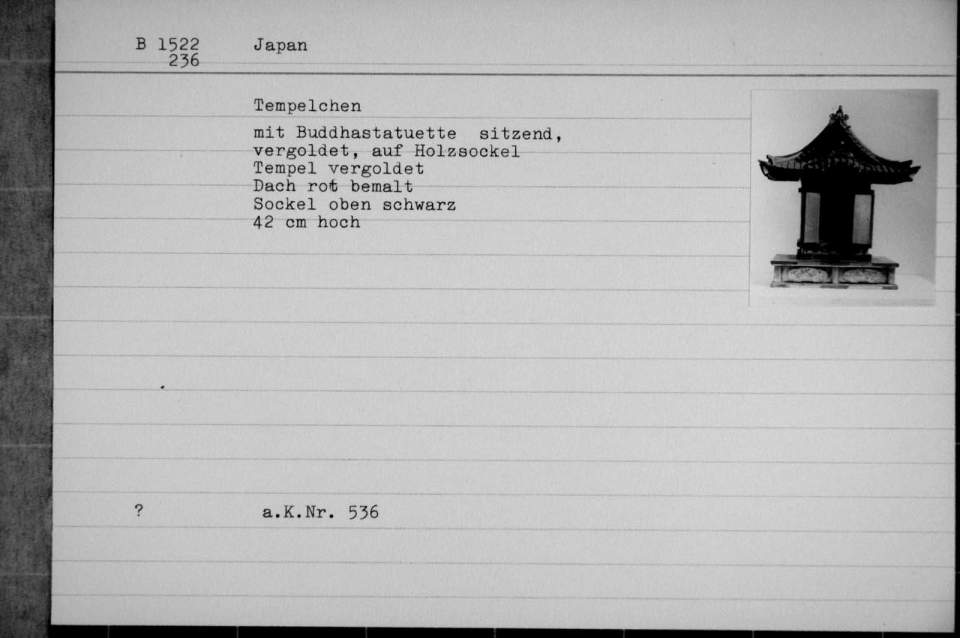 B 1522 Japan
236
Tempelchen
mit Buddhastatuette sitzend,
vergoldet, auf Holzsockel
Tempel vergoldet
Dach rot bemalt
Sockel oben schwarz
42 cm hoch
? a.K.Nr. 536